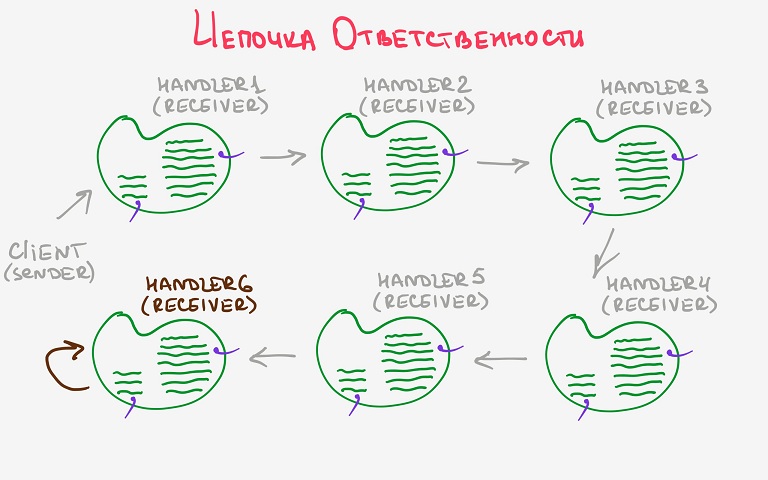 Цепочка Ответственности
HANDLER1
(RECEIVER)
HANDLER2
(RECEIVER)
HANDLER3
(RECEIVER)
CLIENT
(SENDER)
HANDLER6
(RECEIVER)
HANDLER5
(RECEIVER)
HANDLER4
(RECEIVER)